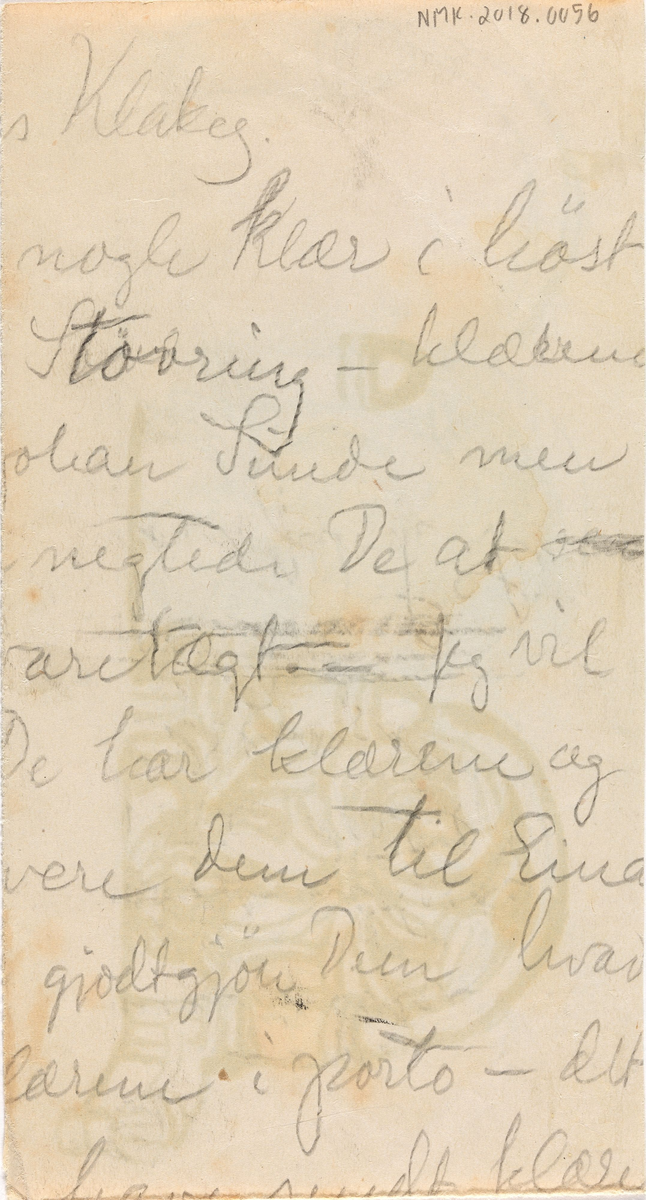 NMK.2018.0056
s Klakeg.
nogle klær i höst
Stövring – klærene
ohan Sunde men
negtede De at
varetægt. – Jeg vil
De har klærene og
vere dem til Eina
gjödtgjöre Dem hvad
lærene i porto – det
have sendt klære